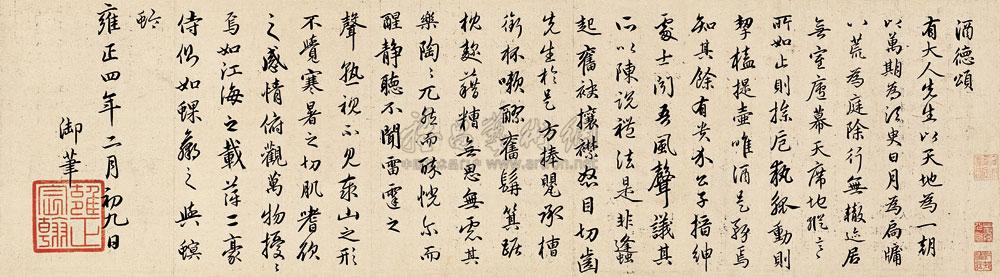 酒德頌
有大人先生以天地為一朝
以萬期為須臾日月為扃牖
八荒為庭除行無轍迹居
無室廬幕天席地縱意
所如止則操卮執瓢動則
挈榼提壺唯酒是務焉
知其餘有貴介公子搢紳
處士聞吾風聲議其
所以陳說禮法是非鋒
起奮袂攘襟怒目切齒
先生於是方捧甖承槽
銜杯漱醪奮髯箕踞
枕麴藉糟無思無慮其
樂陶〻兀然而醉恍尔而
醒靜聽不聞雷霆之
聲熟視不見泰山之形
不覺寒暑之切肌嗜欲
之感情俯觀萬物擾〻
焉如江海之載萍二豪
侍側如蜾蠃之與螟
蛉
雍正四年二月初九日
御筆
雍正宸翰